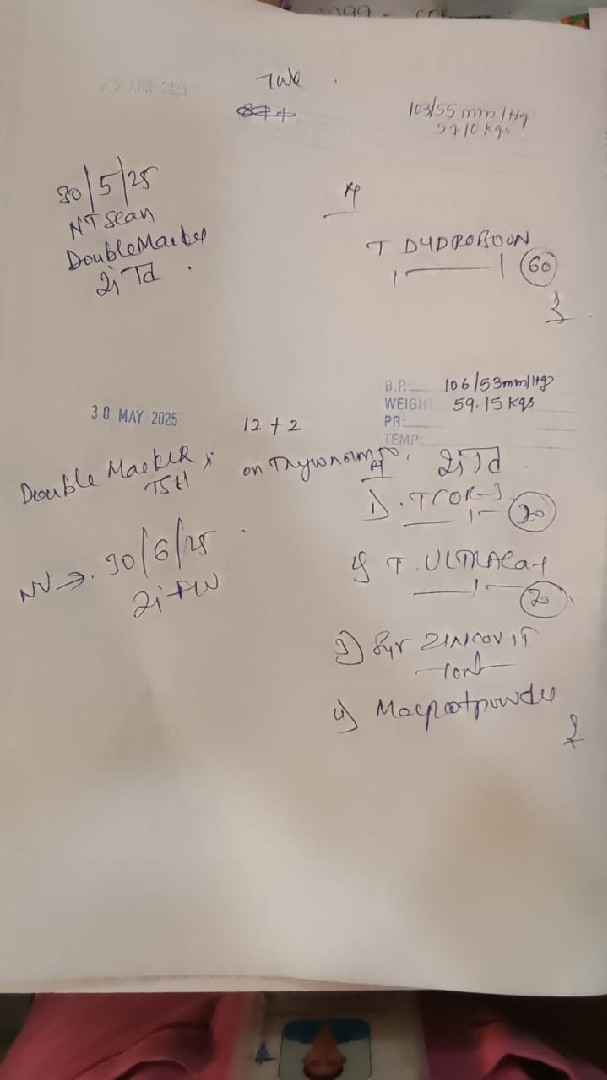 25 APR 2025
7wk
103/55 mm/Hg
59.10 kgs
30/5/25
NT Scan
Double Marker
T DYDROBOON
1 — 1 (60)
B.P. 106/53mm/Hg
WEIGHT 59.15 Kgs
PR:
TEMP:
30 MAY 2025
12 + 2
Double Marker
TSH
on Thyronorm
1) . T COR-3
1 (30)
2) T. ULTRACal
1
3) Syr ZINCOVIT
10ml
4) Macprotpowder
NV → . 30/6/25